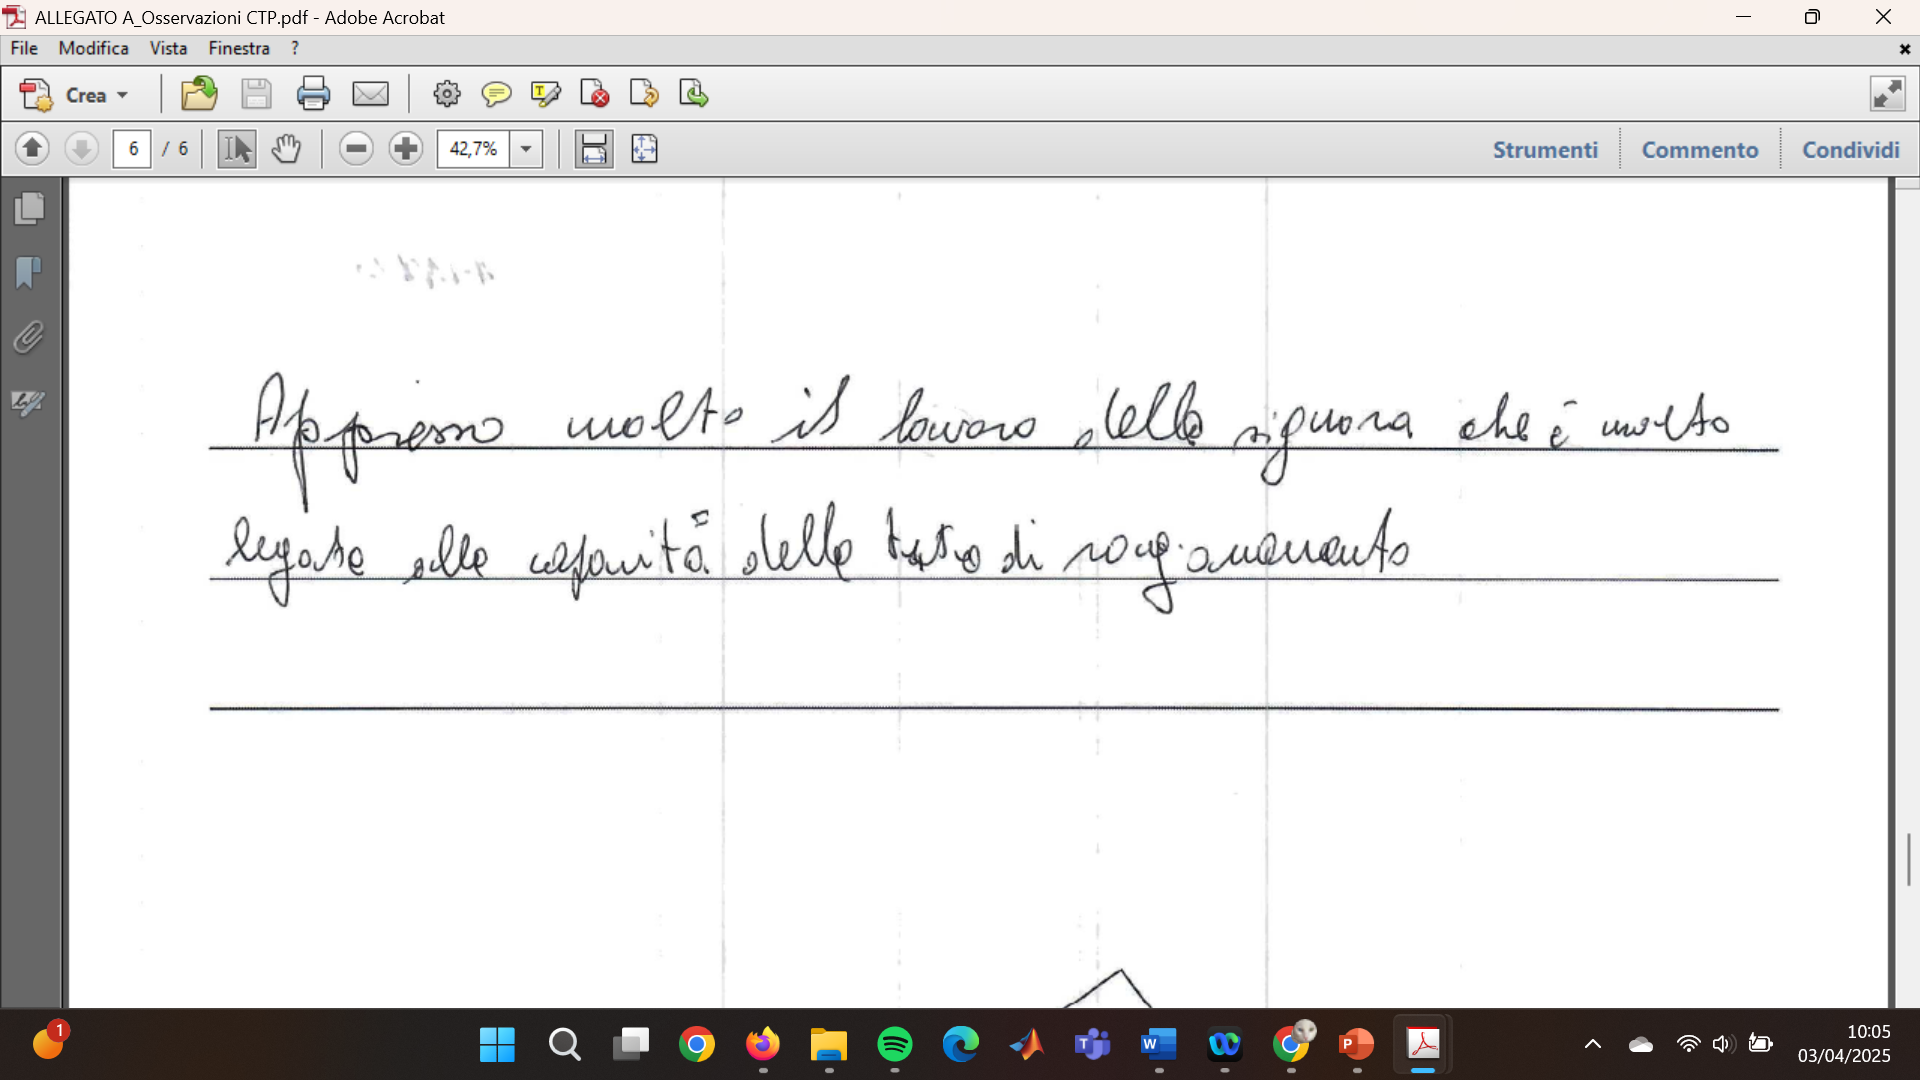 ALLEGATO A_Osservazioni CTP.pdf - Adobe Acrobat
File Modifica Vista Finestra ?
Crea
6 / 6 42,7% Strumenti Commento Condividi
Appresso molto il lavoro della signora che è molto
legata alla capanità della di
1
10:05
03/04/2025